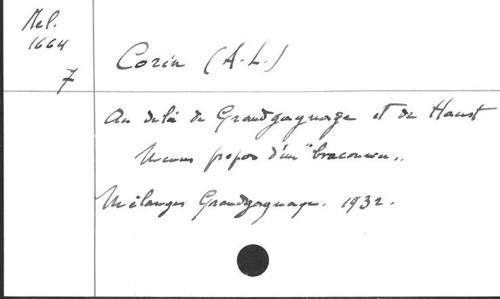 Mél.
1664
7
Corin (A.-L.)
Au delà de Grandgagnage et de Haust
Menus propos d'un "braconnier"
Mélanges Grandgagnage. 1932.